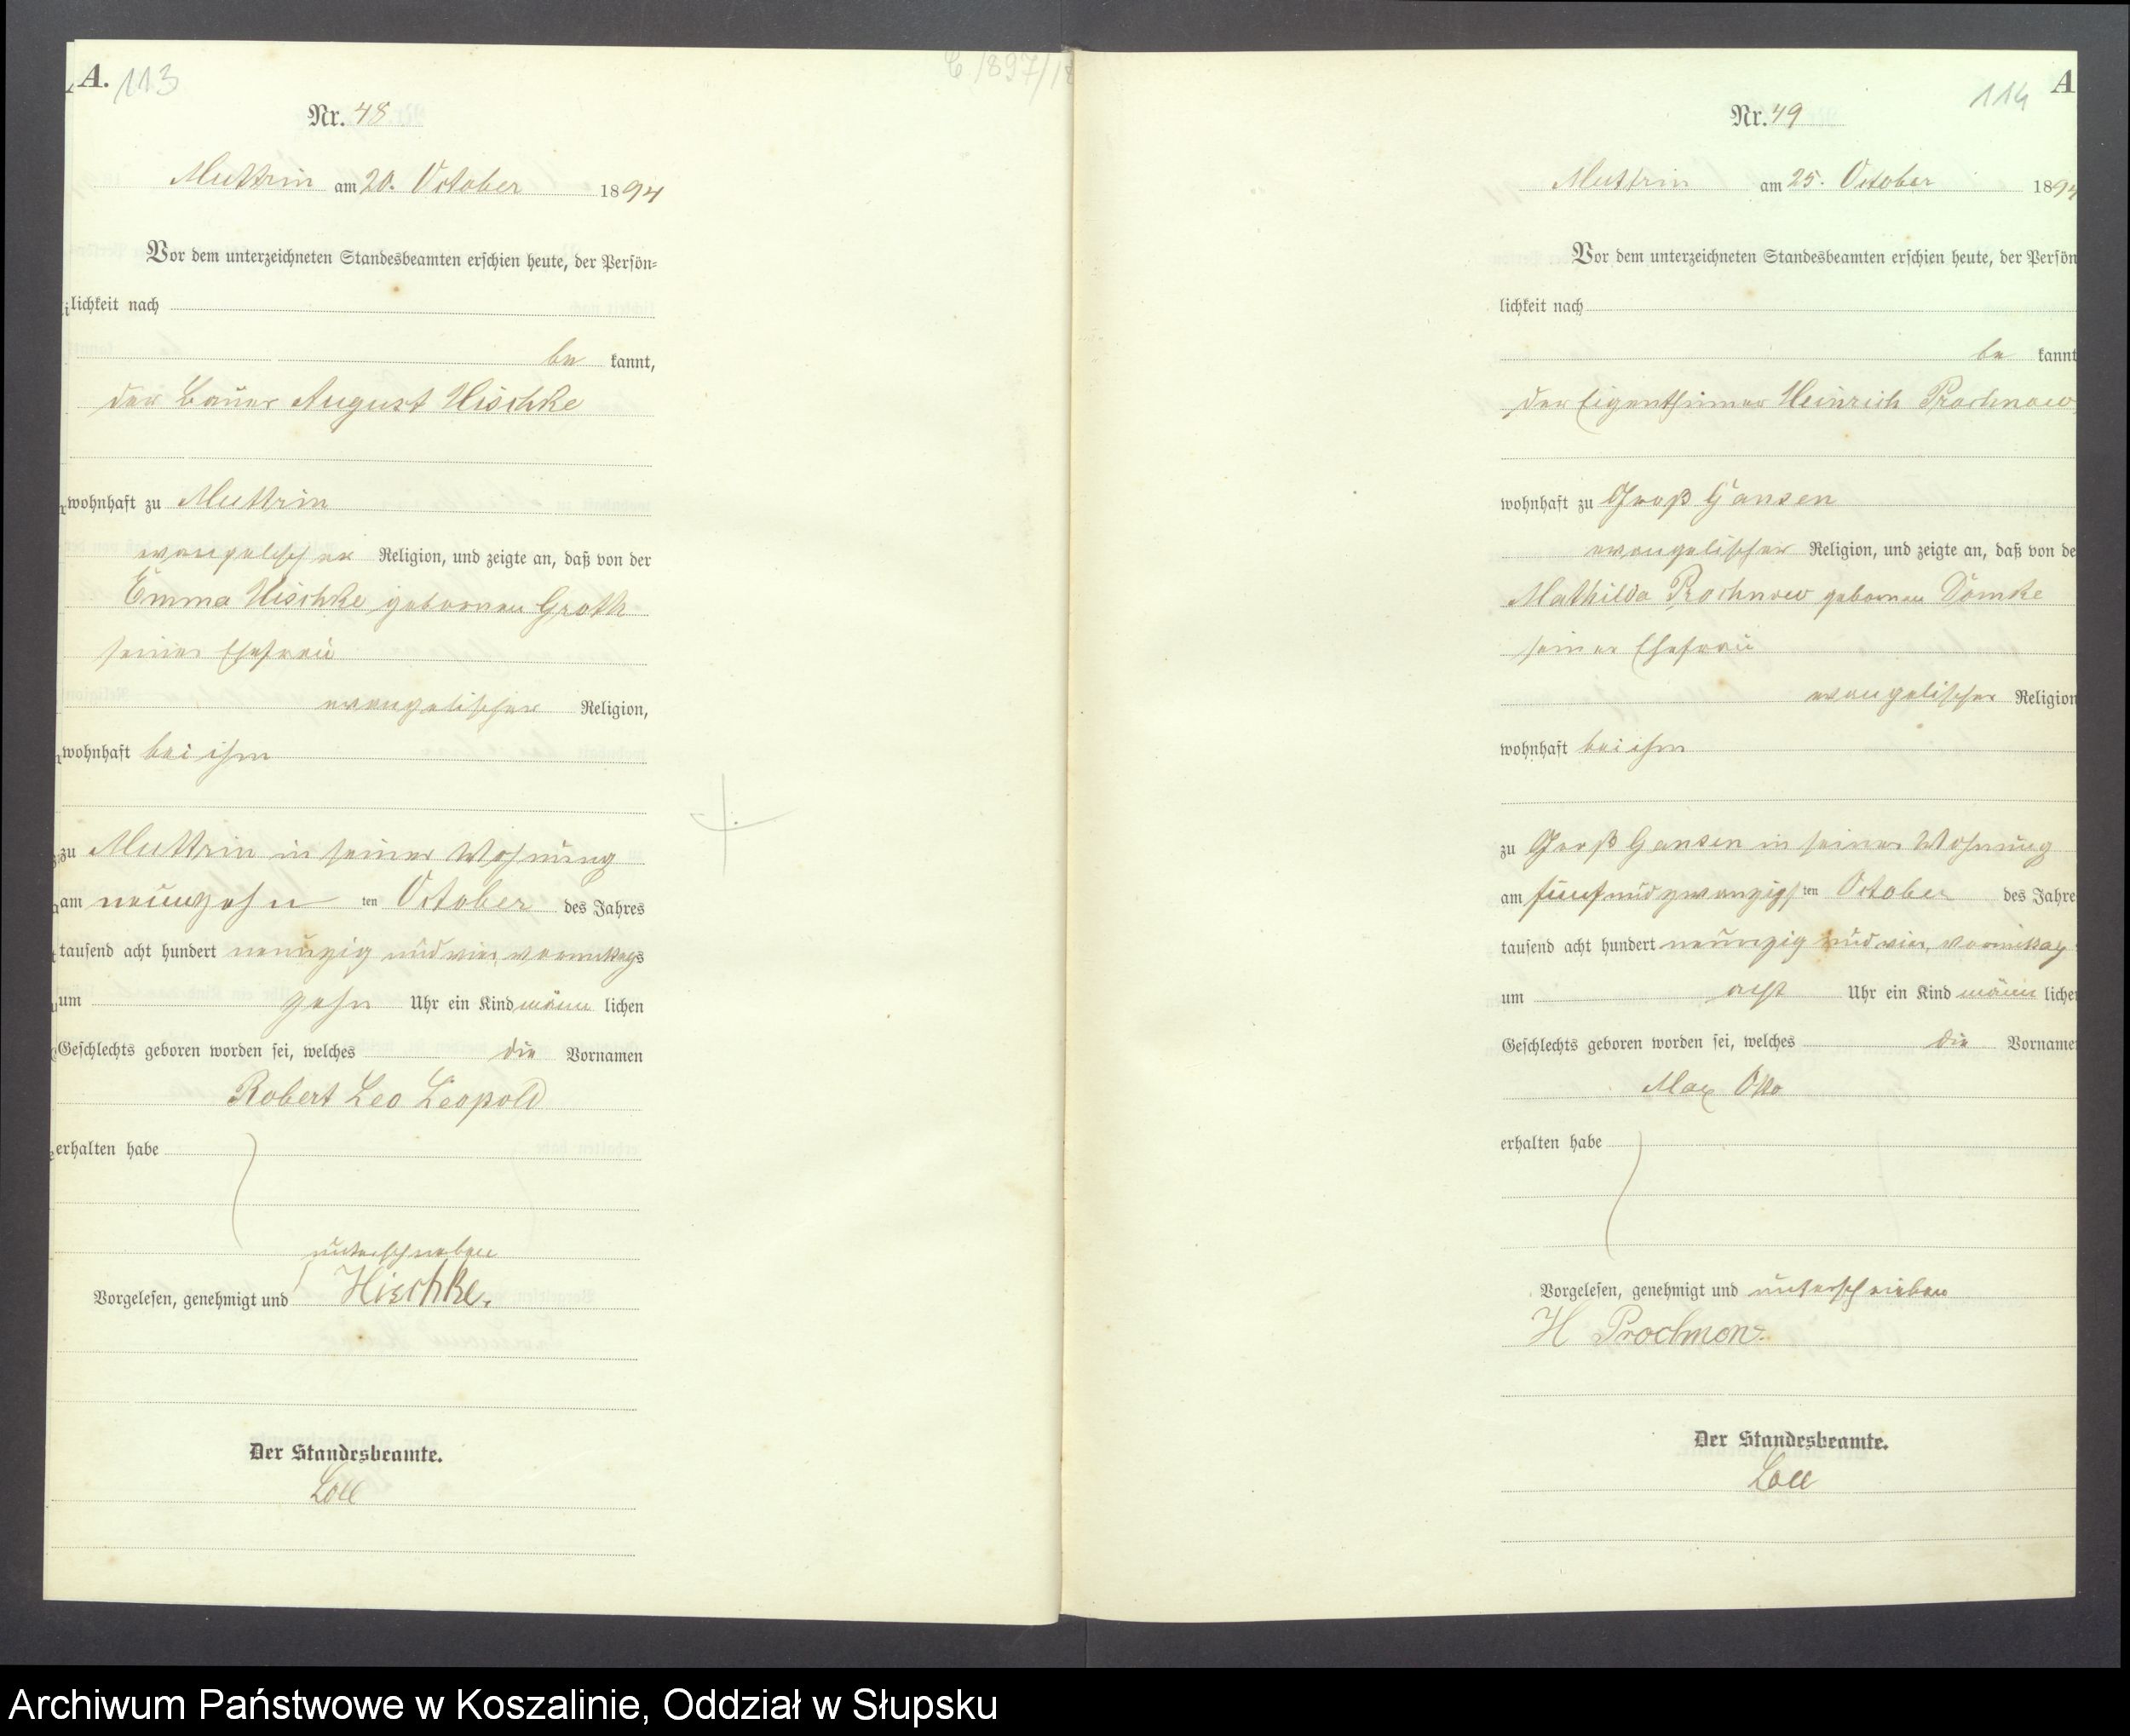 A. 113
Nr. 48
Muttrin am 20. October 1894
Vor dem unterzeichneten Standesbeamten erschien heute, der Persön=
lichkeit nach
be kannt,
der Bauer August Hischke
wohnhaft zu Muttrin
evangelischer Religion, und zeigte an, daß von der
Emma Hischke geborenen Groth
seiner Ehefrau
evangelischer Religion,
wohnhaft bei ihm
zu Muttrin in seiner Wohnung
am neunzehn ten October des Jahres
tausend acht hundert neunzig und vier, vormittags
um zehn Uhr ein Kind männ lichen
Geschlechts geboren worden sei, welches die Vornamen
Robert Leo Leopold
erhalten habe
unterschrieben
Vorgelesen, genehmigt und Hischke.
Der Standesbeamte.
Loll
114 A
Nr. 49
Muttrin am 25. October 1894
Vor dem unterzeichneten Standesbeamten erschien heute, der Persön
lichkeit nach
be kannt
der Eigenthümer Heinrich Prochnow
wohnhaft zu Groß Gansen
evangelischer Religion, und zeigte an, daß von de
Mathilda Prochnow geborenen Dömke
seiner Ehefrau
evangelischer Religion
wohnhaft bei ihm
zu Groß Gansen in seiner Wohnung
am fünfundzwanzigs ten October des Jahre
tausend acht hundert neunzig und vier, vormittag
um acht Uhr ein Kind männ liche
Geschlechts geboren worden sei, welches die Vorname
Max Otto
erhalten habe
Vorgelesen, genehmigt und unterschrieben
H Prochnow.
Der Standesbeamte.
Loll
Archiwum Państwowe w Koszalinie, Oddział w Słupsku